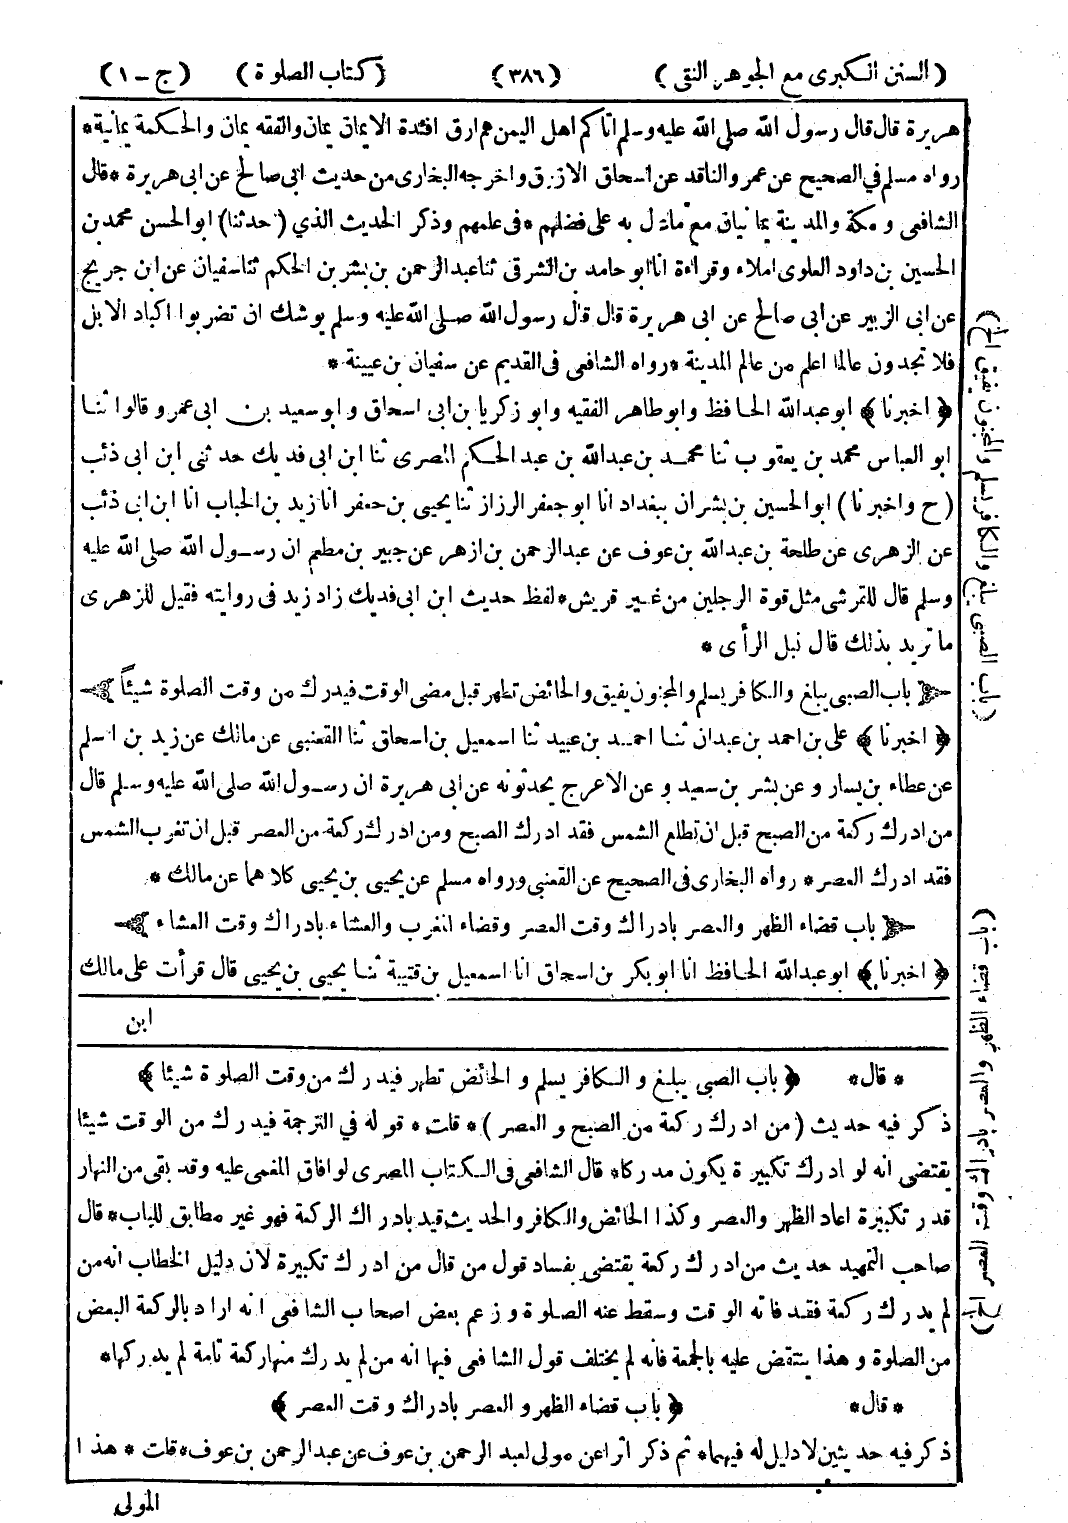 ( السنن الكبرى مع الجوهر النقى ) (٣٨٦) ( كتاب الصلوة ) ( ج - ١ )
هريرة قال قال رسول الله صلى الله عليه وسلم اتاكم اهل اليمن هم ارق افئدة الايمان يمان والفقه يمان والحكمة يمانية *
رواه مسلم في الصحيح عن عمرو الناقد عن اسحاق الازرق واخرجه البخارى من حديث ابى صالح عن ابى هريرة * قال
الشافعى و مكة والمدينة يمانيتان مع مادل به على فضلهم * فى علمهم وذكر الحديث الذي ( حدثنا ) ابو الحسن محمد بن
الحسين بن داود العلوى املاء وقراءة انا ابو حامد بن الشرقى ثنا عبد الرحمن بن بشر بن الحكم ثنا سفيان عن ابن جريج
عن ابى الزبير عن ابى صالح عن ابى هريرة قال قال رسول الله صلى الله عليه وسلم يوشك ان تضربوا اكباد الابل
فلا تجدون عالما اعلم من عالم المدينة * رواه الشافعى فى القديم عن سفيان بن عيينة *
﴿ اخبرنا ﴾ ابو عبد الله الحافظ وابو طاهر الفقيه وابو زكريا بن ابى اسحاق وابو سعيد بن ابى عمرو قالوا ثنا
ابو العباس محمد بن يعقوب ثنا محمد بن عبد الله بن عبد الحكم المصرى ثنا ابن ابى فديك حدثنى ابن ابى ذئب
( ح واخبرنا ) ابو الحسين بن بشران ببغداد انا ابو جعفر الرزاز ثنا يحيى بن جعفر انا زيد بن الحباب انا ابن ابى ذئب
عن الزهرى عن طلحة بن عبد الله بن عوف عن عبد الرحمن بن ازهر عن جبير بن مطعم ان رسول الله صلى الله عليه
وسلم قال للقرشى مثل قوة الرجلين من غير قريش * لفظ حديث ابن ابى فديك زاد زيد فى روايته فقيل للزهرى
ما تريد بذلك قال نبل الرأى *
باب الصبى يبلغ والكافر يسلم والمجنون يفيق والحائض تطهر قبل مضى الوقت فيدرك من وقت الصلوة شيئاً
﴿ اخبرنا ﴾ على بن احمد بن عبدان ثنا احمد بن عبيد ثنا اسمعيل بن اسحاق ثنا القعنبى عن مالك عن زيد بن اسلم
عن عطاء بن يسار وعن بشر بن سعيد وعن الاعرج يحدثونه عن ابى هريرة ان رسول الله صلى الله عليه وسلم قال
من ادرك ركعة من الصبح قبل ان تطلع الشمس فقد ادرك الصبح ومن ادرك ركعة من العصر قبل ان تغرب الشمس
فقد ادرك العصر * رواه البخارى فى الصحيح عن القعنبى ورواه مسلم عن يحيى بن يحيى كلاهما عن مالك *
باب قضاء الظهر والعصر بادراك وقت العصر وقضاء المغرب والعشاء بادراك وقت العشاء
﴿ اخبرنا ﴾ ابو عبد الله الحافظ انا ابو بكر بن اسحاق انا اسمعيل بن قتيبة ثنا يحيى بن يحيى قال قرأت على مالك
ابن
* قال * ﴿ باب الصبي يبلغ والكافر يسلم والحائض تطهر فيدرك من وقت الصلوة شيئا ﴾
ذكر فيه حديث ( من ادرك ركعة من الصبح و العصر ) * قلت * قوله في الترجمة فيدرك من الوقت شيئا
يقتضى انه لو ادرك تكبيرة يكون مدركا * قال الشافعى فى الكتاب المصرى لو افاق المغمى عليه وقد بقى من النهار
قدر تكبيرة اعاد الظهر والعصر وكذا الحائض والكافر والحديث قيد بادراك الركعة فهو غير مطابق للباب * قال
صاحب التمهيد حديث من ادرك ركعة يقتضى بفساد قول من قال من ادرك تكبيرة لان دليل الخطاب انه من
لم يدرك ركعة فقد فاته الوقت وسقط عنه الصلوة وزعم بعض اصحاب الشافعى انه اراد بالركعة البعض
من الصلوة وهذا ينتقض عليه بالجمعة فانه لم يختلف قول الشافعى فيها انه من لم يدرك منها ركعة تامة لم يدركها *
* قال * ﴿ باب قضاء الظهر و العصر بادراك وقت العصر ﴾
ذكر فيه حديثين لا دليل له فيهما * ثم ذكر اثرا عن مولى لعبد الرحمن بن عوف عن عبد الرحمن بن عوف * قلت * هذا
المولى
( باب الصبى يبلغ والكافر يسلم والمجنون يفيق الخ )
( باب قضاء الظهر والعصر بادراك وقت العصر الخ )